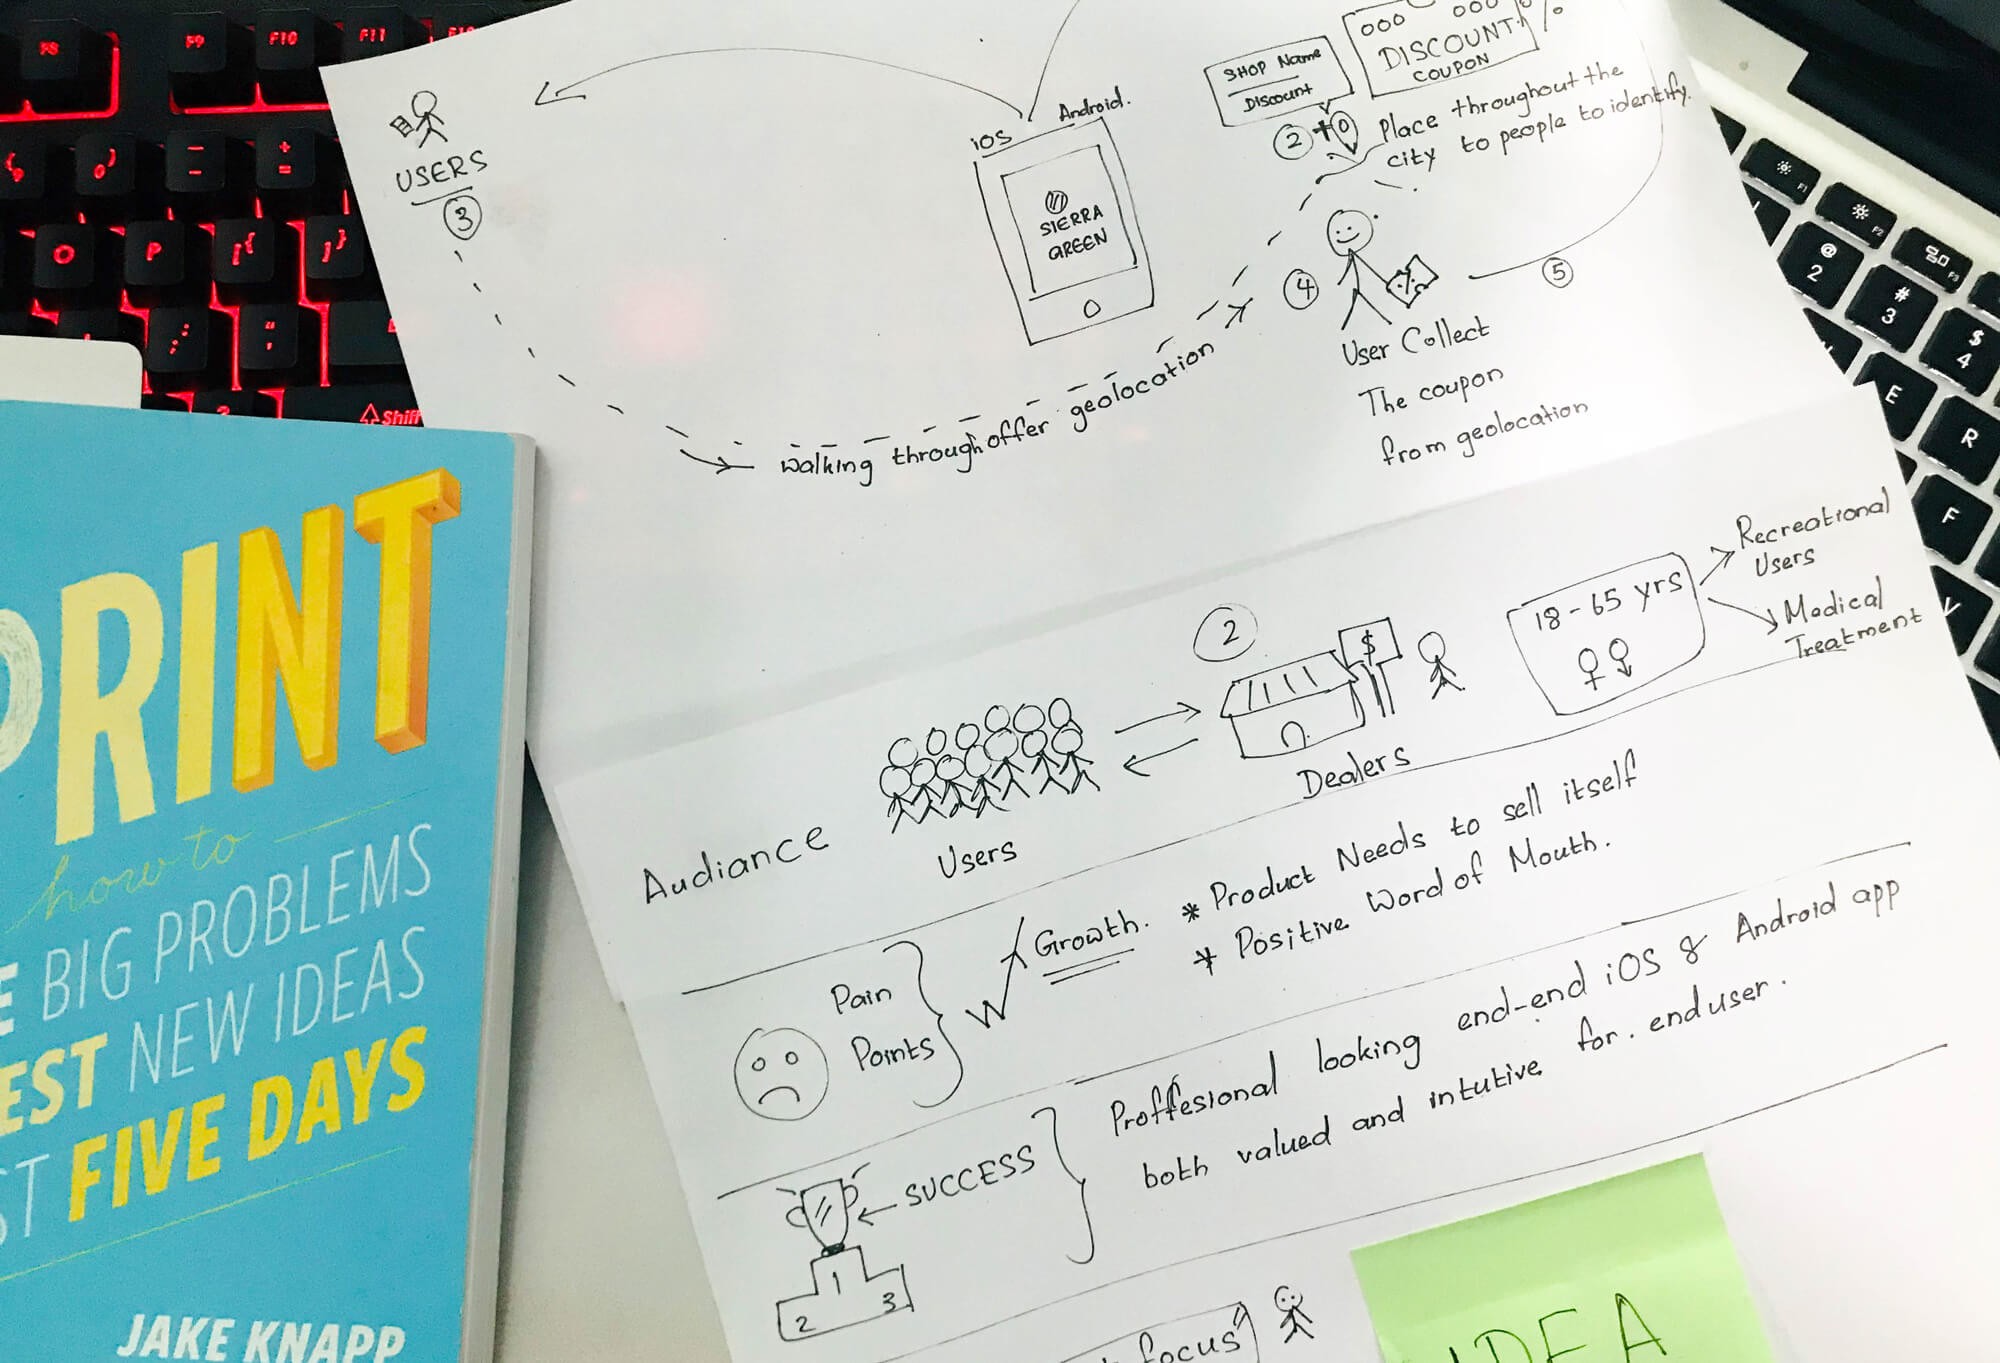 F8
F9
F10
F11
{
[
0
)
-
+
=
O
P
[ {
] }
: ;
" '
?
Shift
USERS
3
iOS
Android.
SIERRA
GREEN
SHOP Name
Discount
000 000
DISCOUNT
COUPON
%
2 +
Place throughout the
city to people to identify.
4
5
User Collect
The coupon
from geolocation
walking through offer geolocation
F1
F2
F3
@
2
#
3
$
4
E
R
F
V
PRINT
how to
BIG PROBLEMS
EST NEW IDEAS
ST FIVE DAYS
JAKE KNAPP
Audiance
Users
2
$
Dealers
18-65 yrs
Recreational
Users
Medical
Treatment
Pain
Points
Growth.
* Product Needs to sell itself
* Positive Word of Mouth.
SUCCESS
1
2
3
Proffesional looking end-end iOS & Android app
both valued and intutive for. enduser.
focus"
IDEA